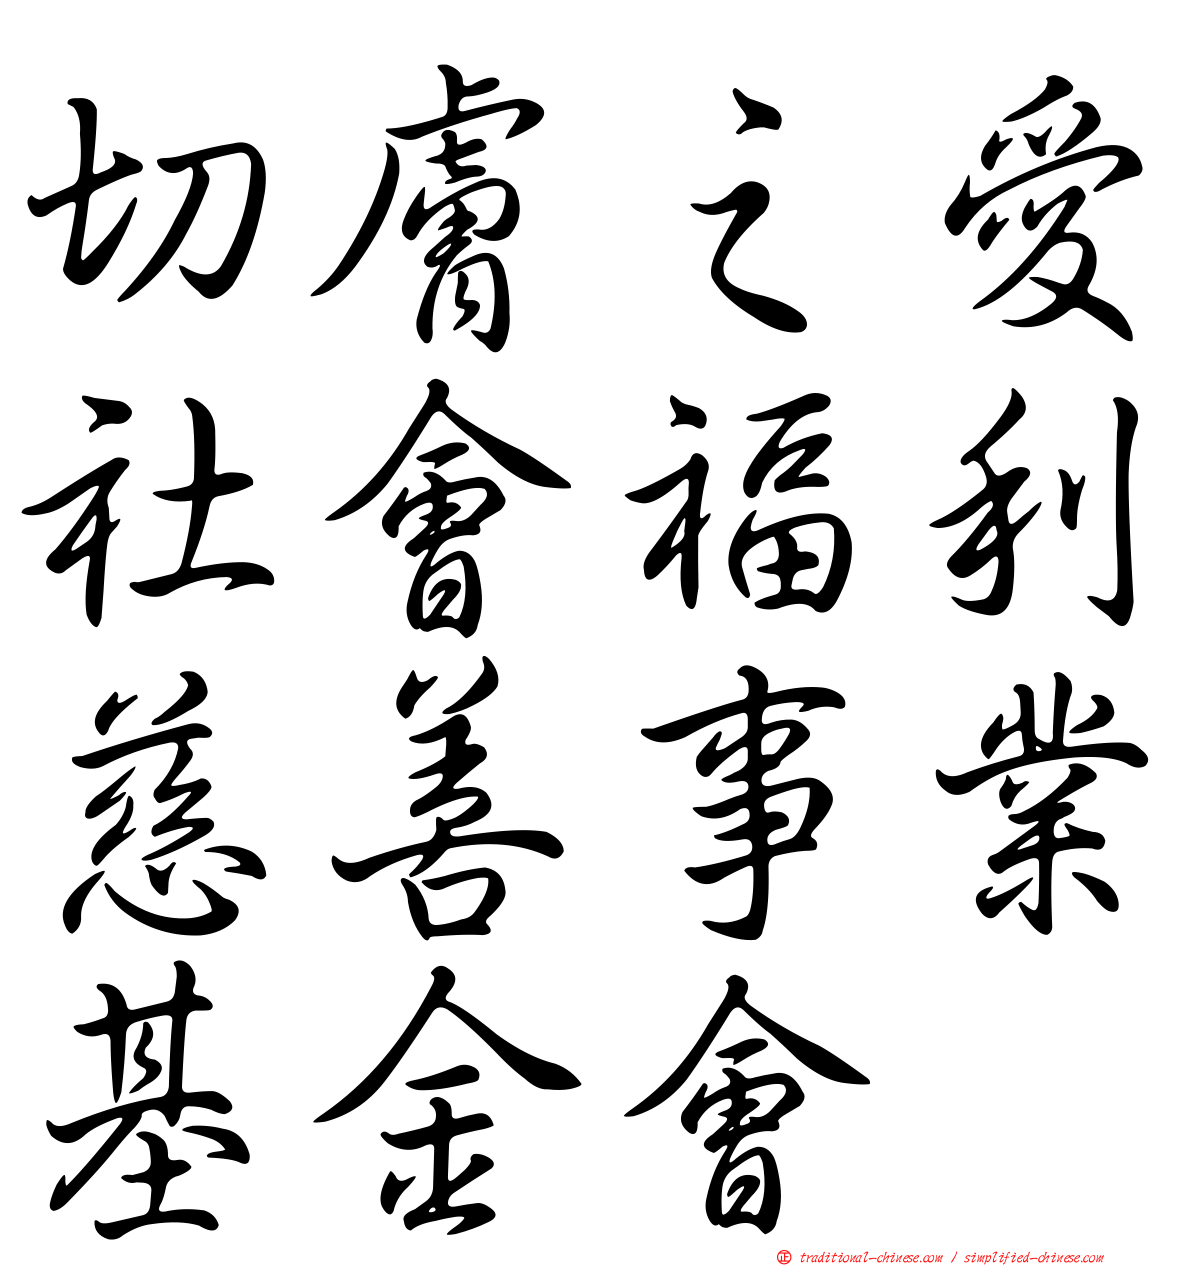 切膚之愛
社會福利
慈善事業
基金會
正 traditional-chinese.com / simplified-chinese.com